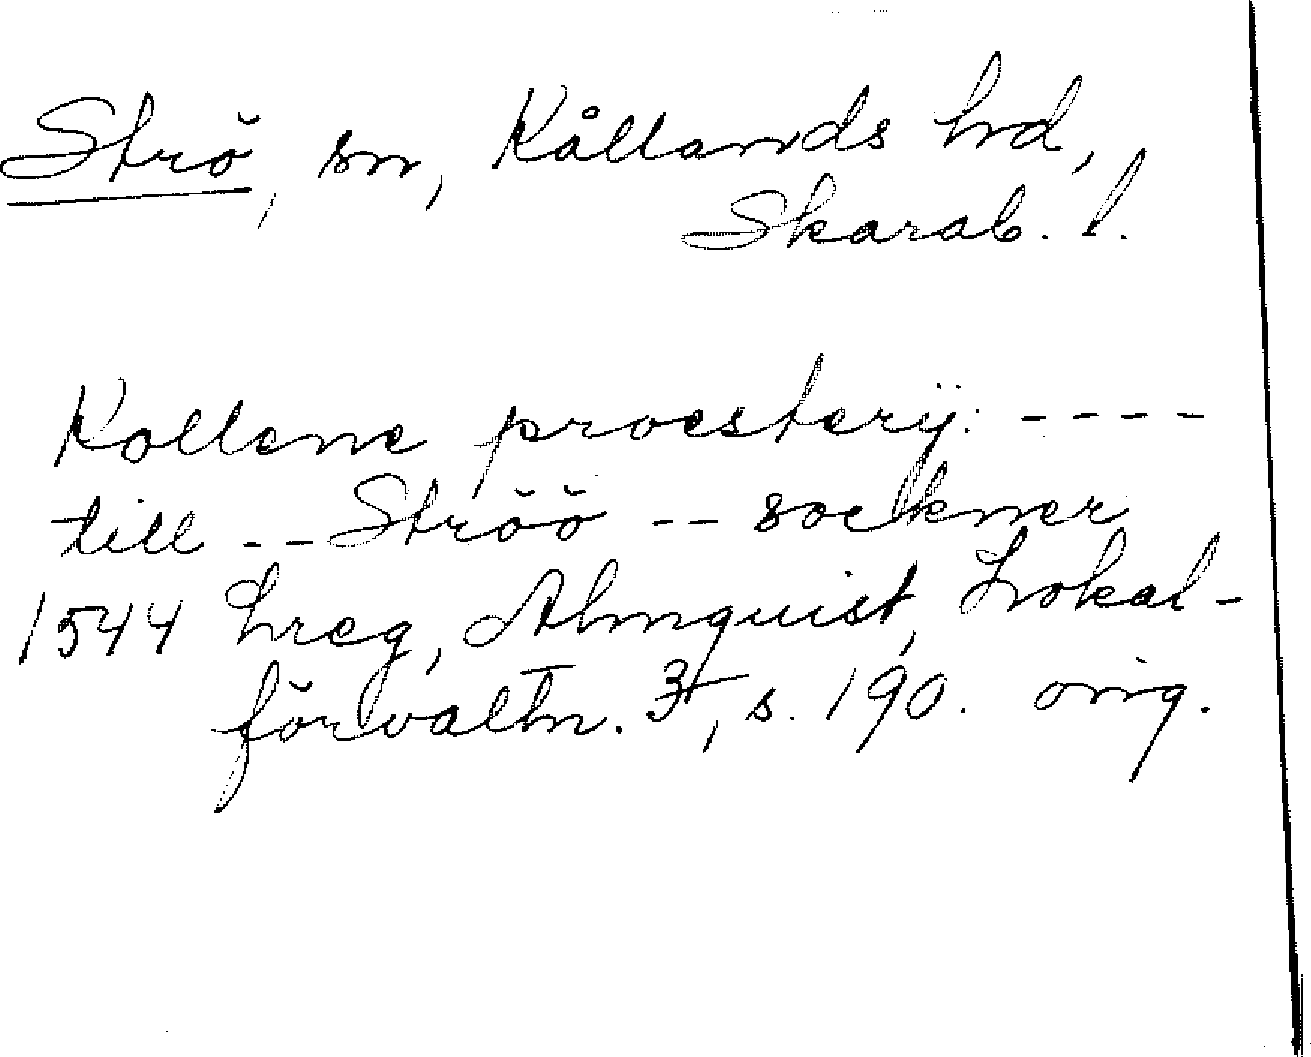 Strö, sn, Kållands hd,
Skarab. l.
Kollene proestery: ----
till -- Ströö -- sockner
1544 hreg, Almquist, Lokal-
förvaltn. 3, s. 190. orig.